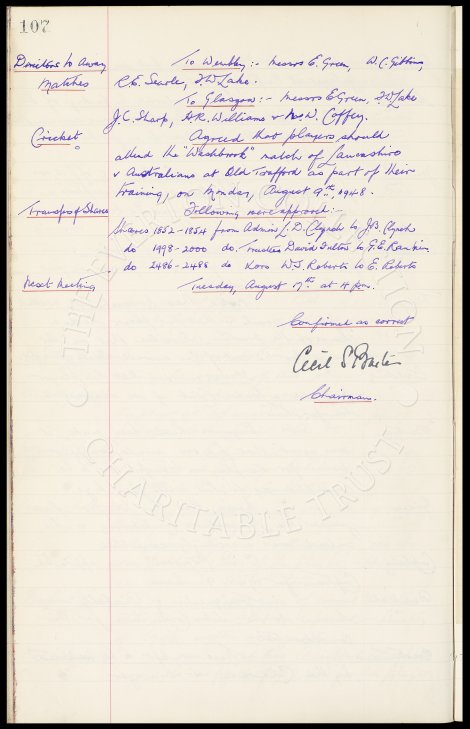 107
Directors to Away Matches
To Wembley :- Messrs E. Green, W.C. Gibbins,
R.E. Searle, F.W. Lake.
To Glasgow :- Messrs E Green, F.W. Lake
J.C. Sharp, A.R. Williams & W. Coffey.
Cricket
Agreed that players should
attend the "Washbrook" match of Lancashire
v Australians at Old Trafford as part of their
training, on Monday, August 9th, 1948.
Transfer of Shares
Following were approved :-
Shares 1852-1854 from Admin L.D. Clynch to J.B. Clynch
do 1998-2000 do. Trustees David to G.E. Rankin
do 2486-2488 do W.J. Roberts to E. Roberts
Next Meeting
Tuesday, August 17th at 4 pm.
Confirmed as correct
Cecil S Baxter
Chairman.
THE EVERTON COLLECTION
CHARITABLE TRUST